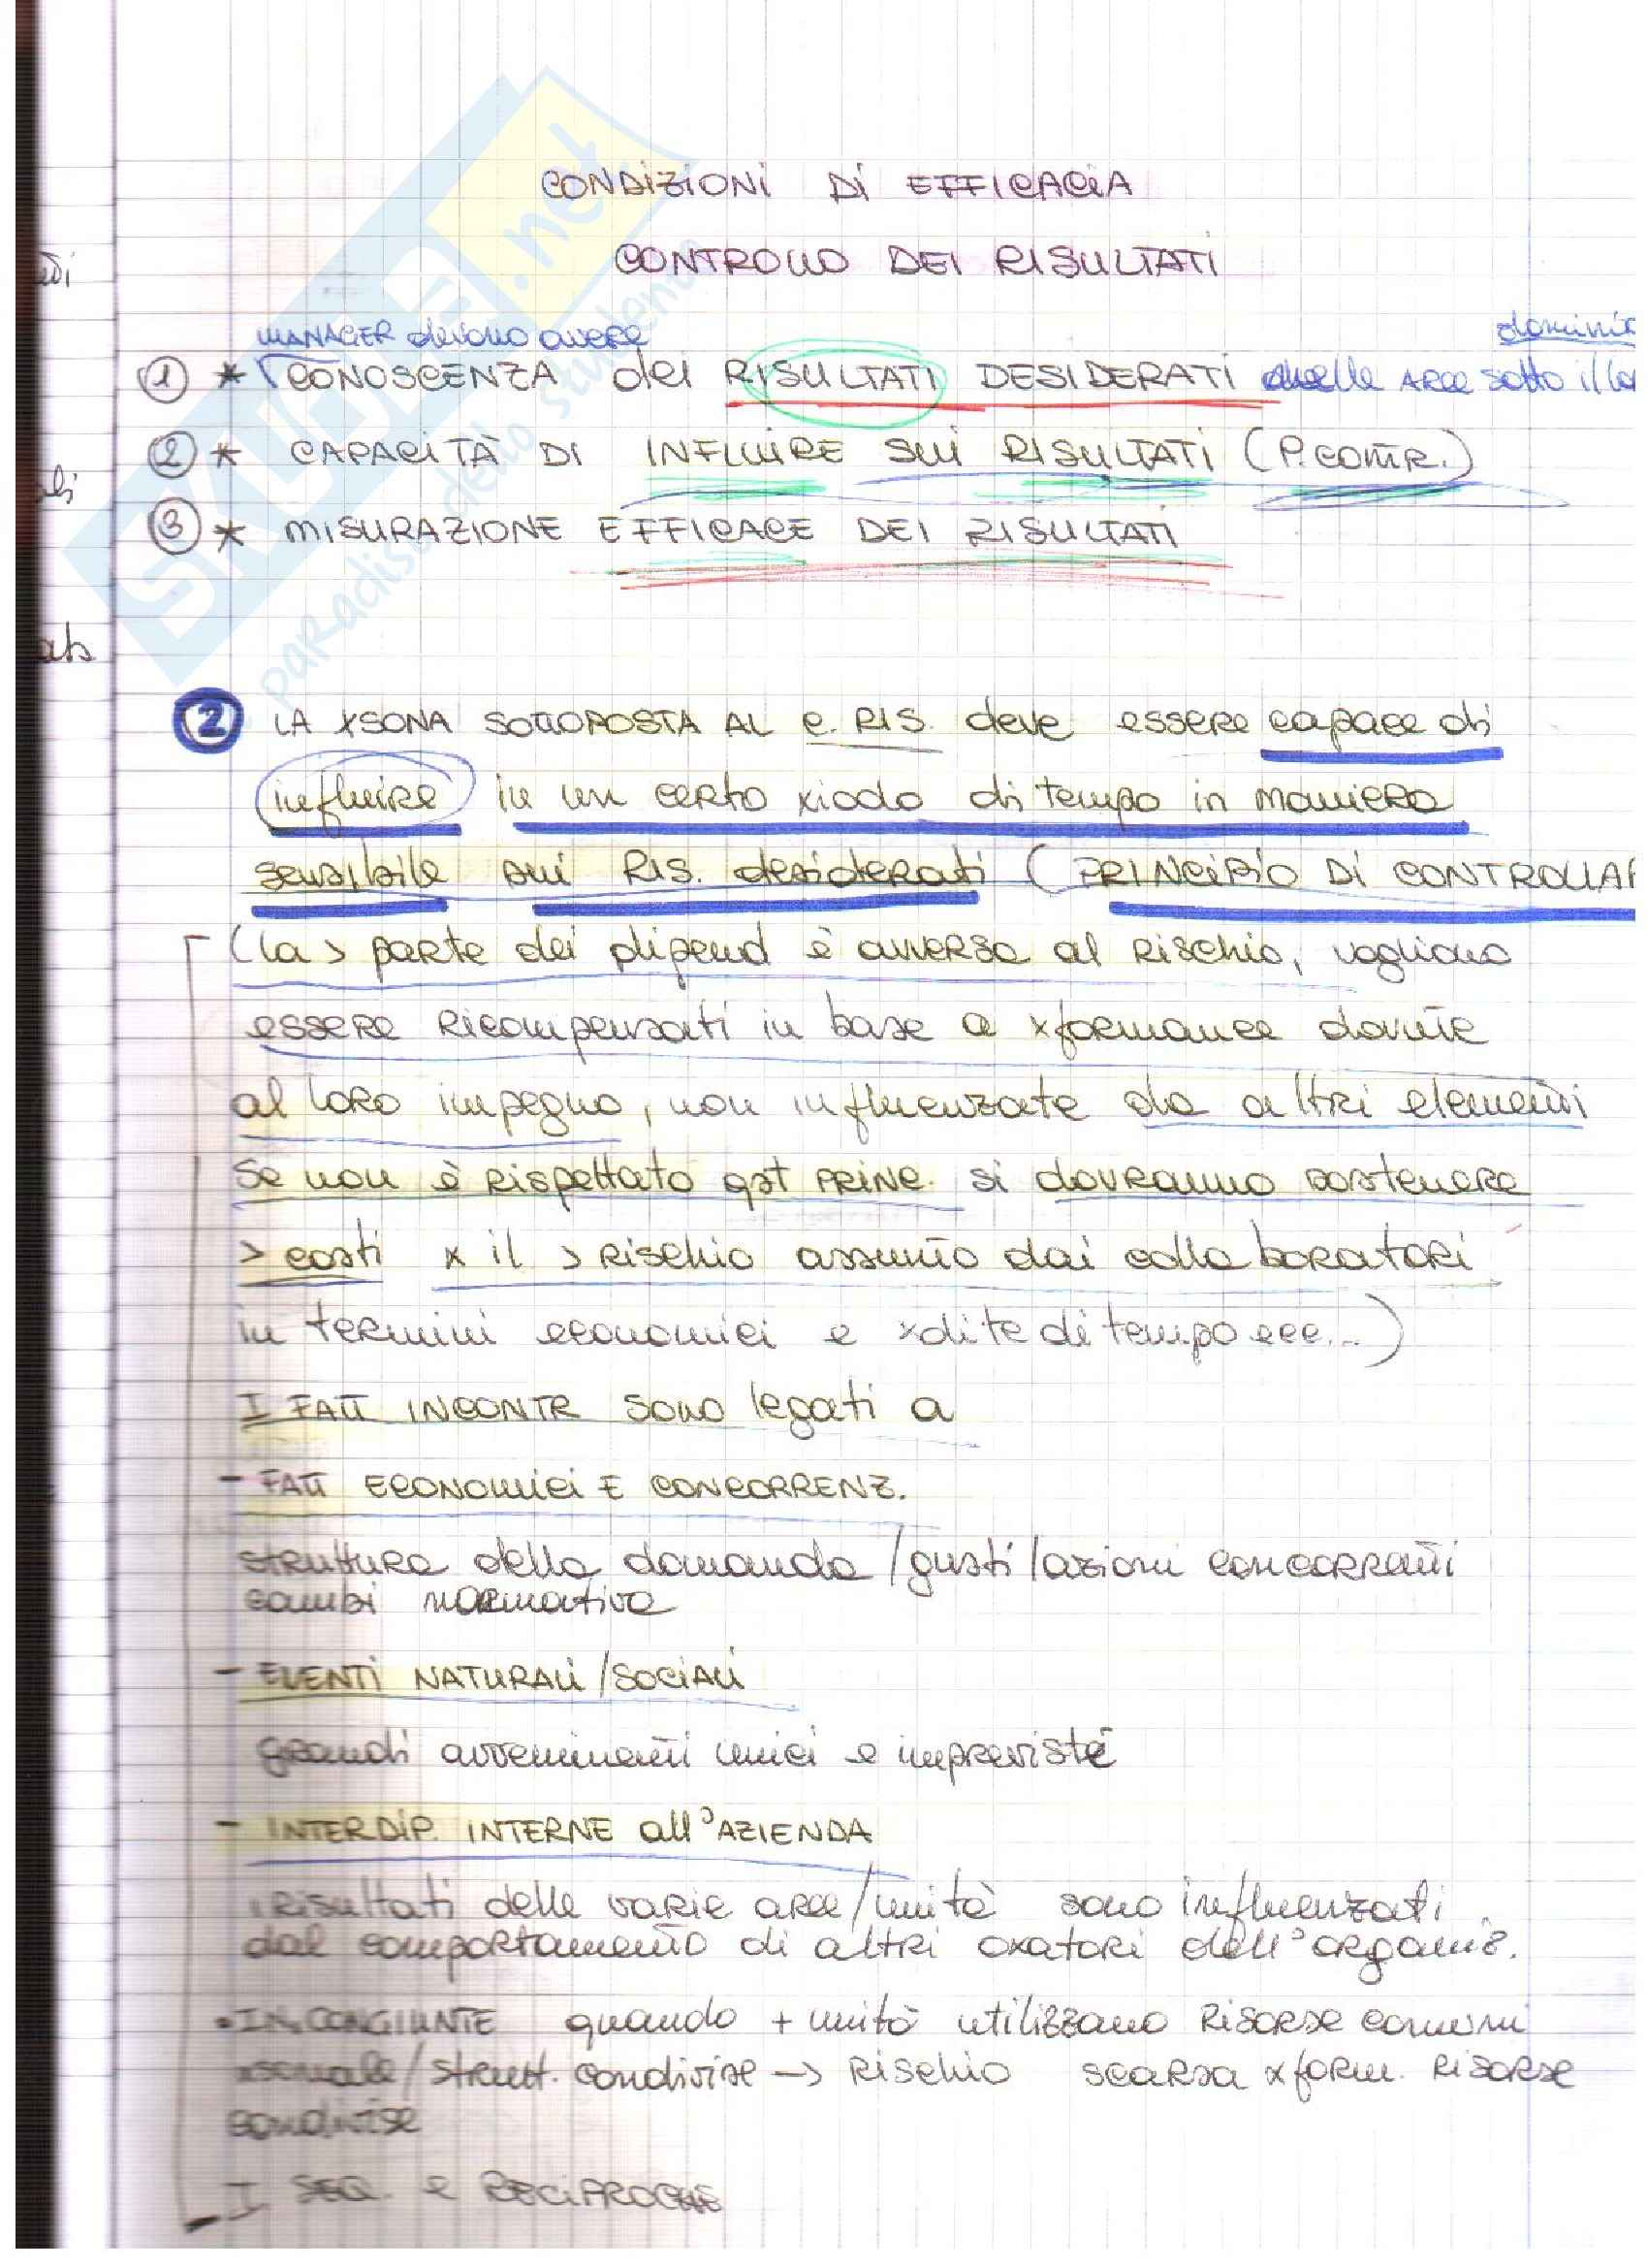 CONDIZIONI DI EFFICACIA
CONTROLLO DEI RISULTATI
MANAGER devono avere
dominio
① * CONOSCENZA dei RISULTATI DESIDERATI nelle AREE sotto il lo
② * CAPACITÀ DI INFLUIRE SUI RISULTATI (P.CONTR.)
③ * MISURAZIONE EFFICACE DEI RISULTATI
② LA XSONA SOTTOPOSTA AL C. RIS. deve essere capace di
influire in un certo xiodo di tempo in maniera
sensibile sui RIS. desiderati (PRINCIPIO DI CONTROLLA
(la > parte dei dipend è avversa al rischio, vogliono
essere ricompensati in base a xformance dovute
al loro impegno, non influenzate da altri elementi
Se non è rispettato qst PRINC. si dovranno sostenere
> costi x il > rischio assunto dai collaboratori
in termini economici e xdite di tempo ecc...)
I FATT INCONTR sono legati a
- FATT ECONOMICI E CONCORRENZ.
struttura della domanda /gusti /azioni concorrenti
cambi normativa
- EVENTI NATURALI /SOCIALI
grandi avvenimenti unici e imprevisti
- INTERDIP. INTERNE all'AZIENDA
i risultati delle varie aree/unità sono influenzati
dal comportamento di altri oxatori dell'organiz.
• I. CONGIUNTE quando + unità utilizzano risorse comuni
xsonale/strutt. condivise → rischio scarsa xform. risorse
condivise
I SEQ. e RECIPROCHE
SKUOLA.net
paradiso dello studente